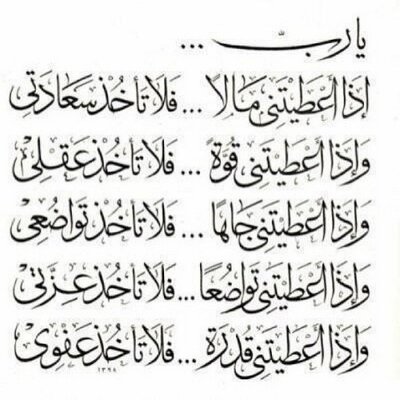 يا ربّ ...
إِذَا أَعْطَيْتَنِي مَالًا ... فَلَا تَأْخُذْ سَعَادَتِي
وَإِذَا أَعْطَيْتَنِي قُوَّةً ... فَلَا تَأْخُذْ عَقْلِي
وَإِذَا أَعْطَيْتَنِي جَاهًا ... فَلَا تَأْخُذْ تَوَاضُعِي
وَإِذَا أَعْطَيْتَنِي تَوَاضُعًا ... فَلَا تَأْخُذْ عِزَّتِي
وَإِذَا أَعْطَيْتَنِي قُدْرَةً ... فَلَا تَأْخُذْ عَفْوِي
١٣٩٨